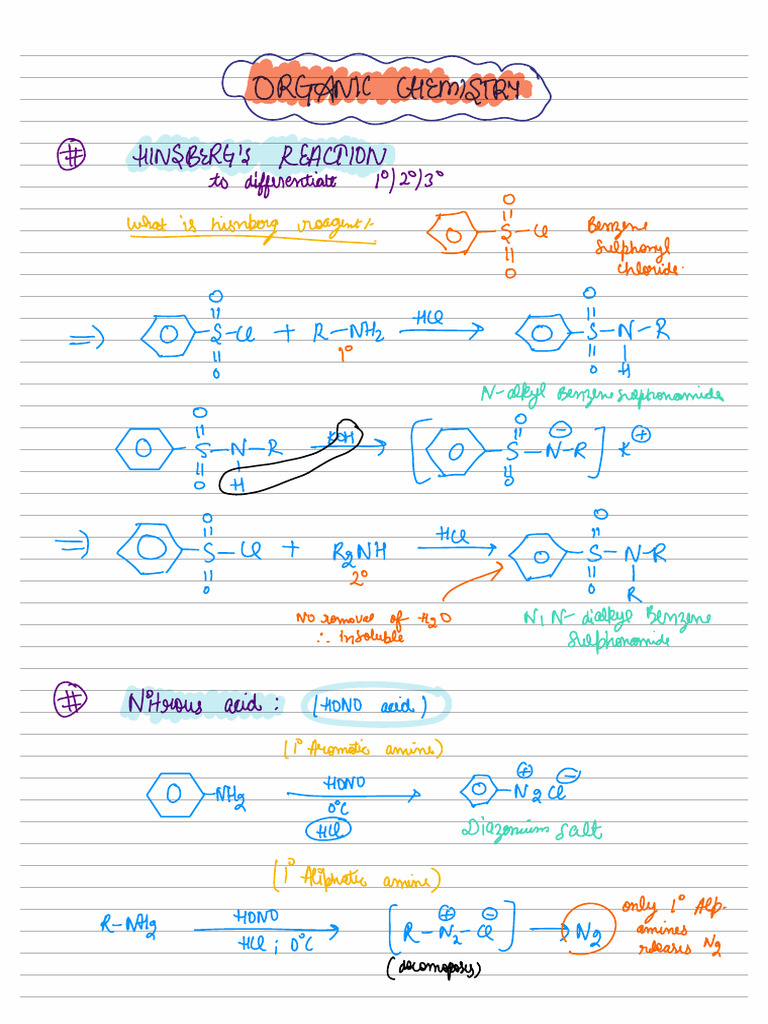 ORGANIC CHEMISTRY
# HINSBERG'S REACTION
to differentiatt 1°/2°/3°
What is hisnberg reagent:-
O
S-Cl
O
Benzene
Sulphonyl
chloride.
=> O
S-Cl + R-NH2 HCl S-N-R
1° O H
N-alkyl Benzene sulphonamide
O
S-N-R KOH [ S-N-R ] K
O H ⊖ ⊕
=> O
S-Cl + R2NH HCl S-N-R
2° O R
No removal of H2O
∴ insoluble
N,N-dialkyl Benzene
Sulphonamide
# Nitrous acid: (HONO acid)
(1° Aromatic amine)
NH2 HONO N2Cl
0°C ⊕ ⊖
HCl
Diazonium salt
(1° Aliphatic amine)
R-NH2 HONO [R-N2-Cl] → N2
HCl ; 0°C ⊕ ⊖
(decomposes)
only 1° Alp.
amines
releases N2